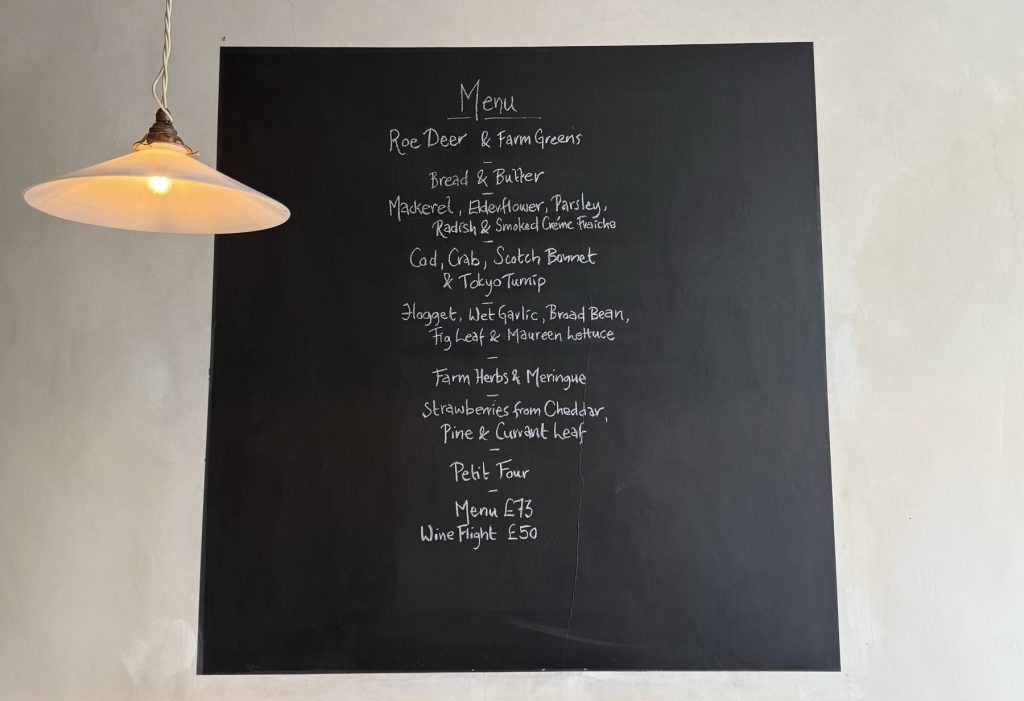 Menu
Roe Deer & Farm Greens
–
Bread & Butter
–
Mackerel, Elderflower, Parsley,
Radish & Smoked Créme Fraîche
–
Cod, Crab, Scotch Bonnet
& Tokyo Turnip
–
Hogget, Wet Garlic, Broad Bean,
Fig Leaf & Maureen Lettuce
–
Farm Herbs & Meringue
–
Strawberries from Cheddar,
Pine & Currant Leaf
–
Petit Four
–
Menu £73
Wine Flight £50